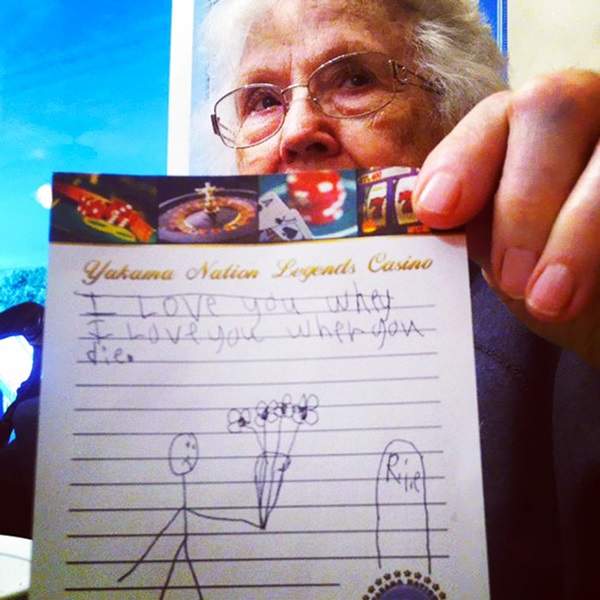 Yakama Nation Legends Casino
I Love you when
I Love you when you
die.
R.i.P